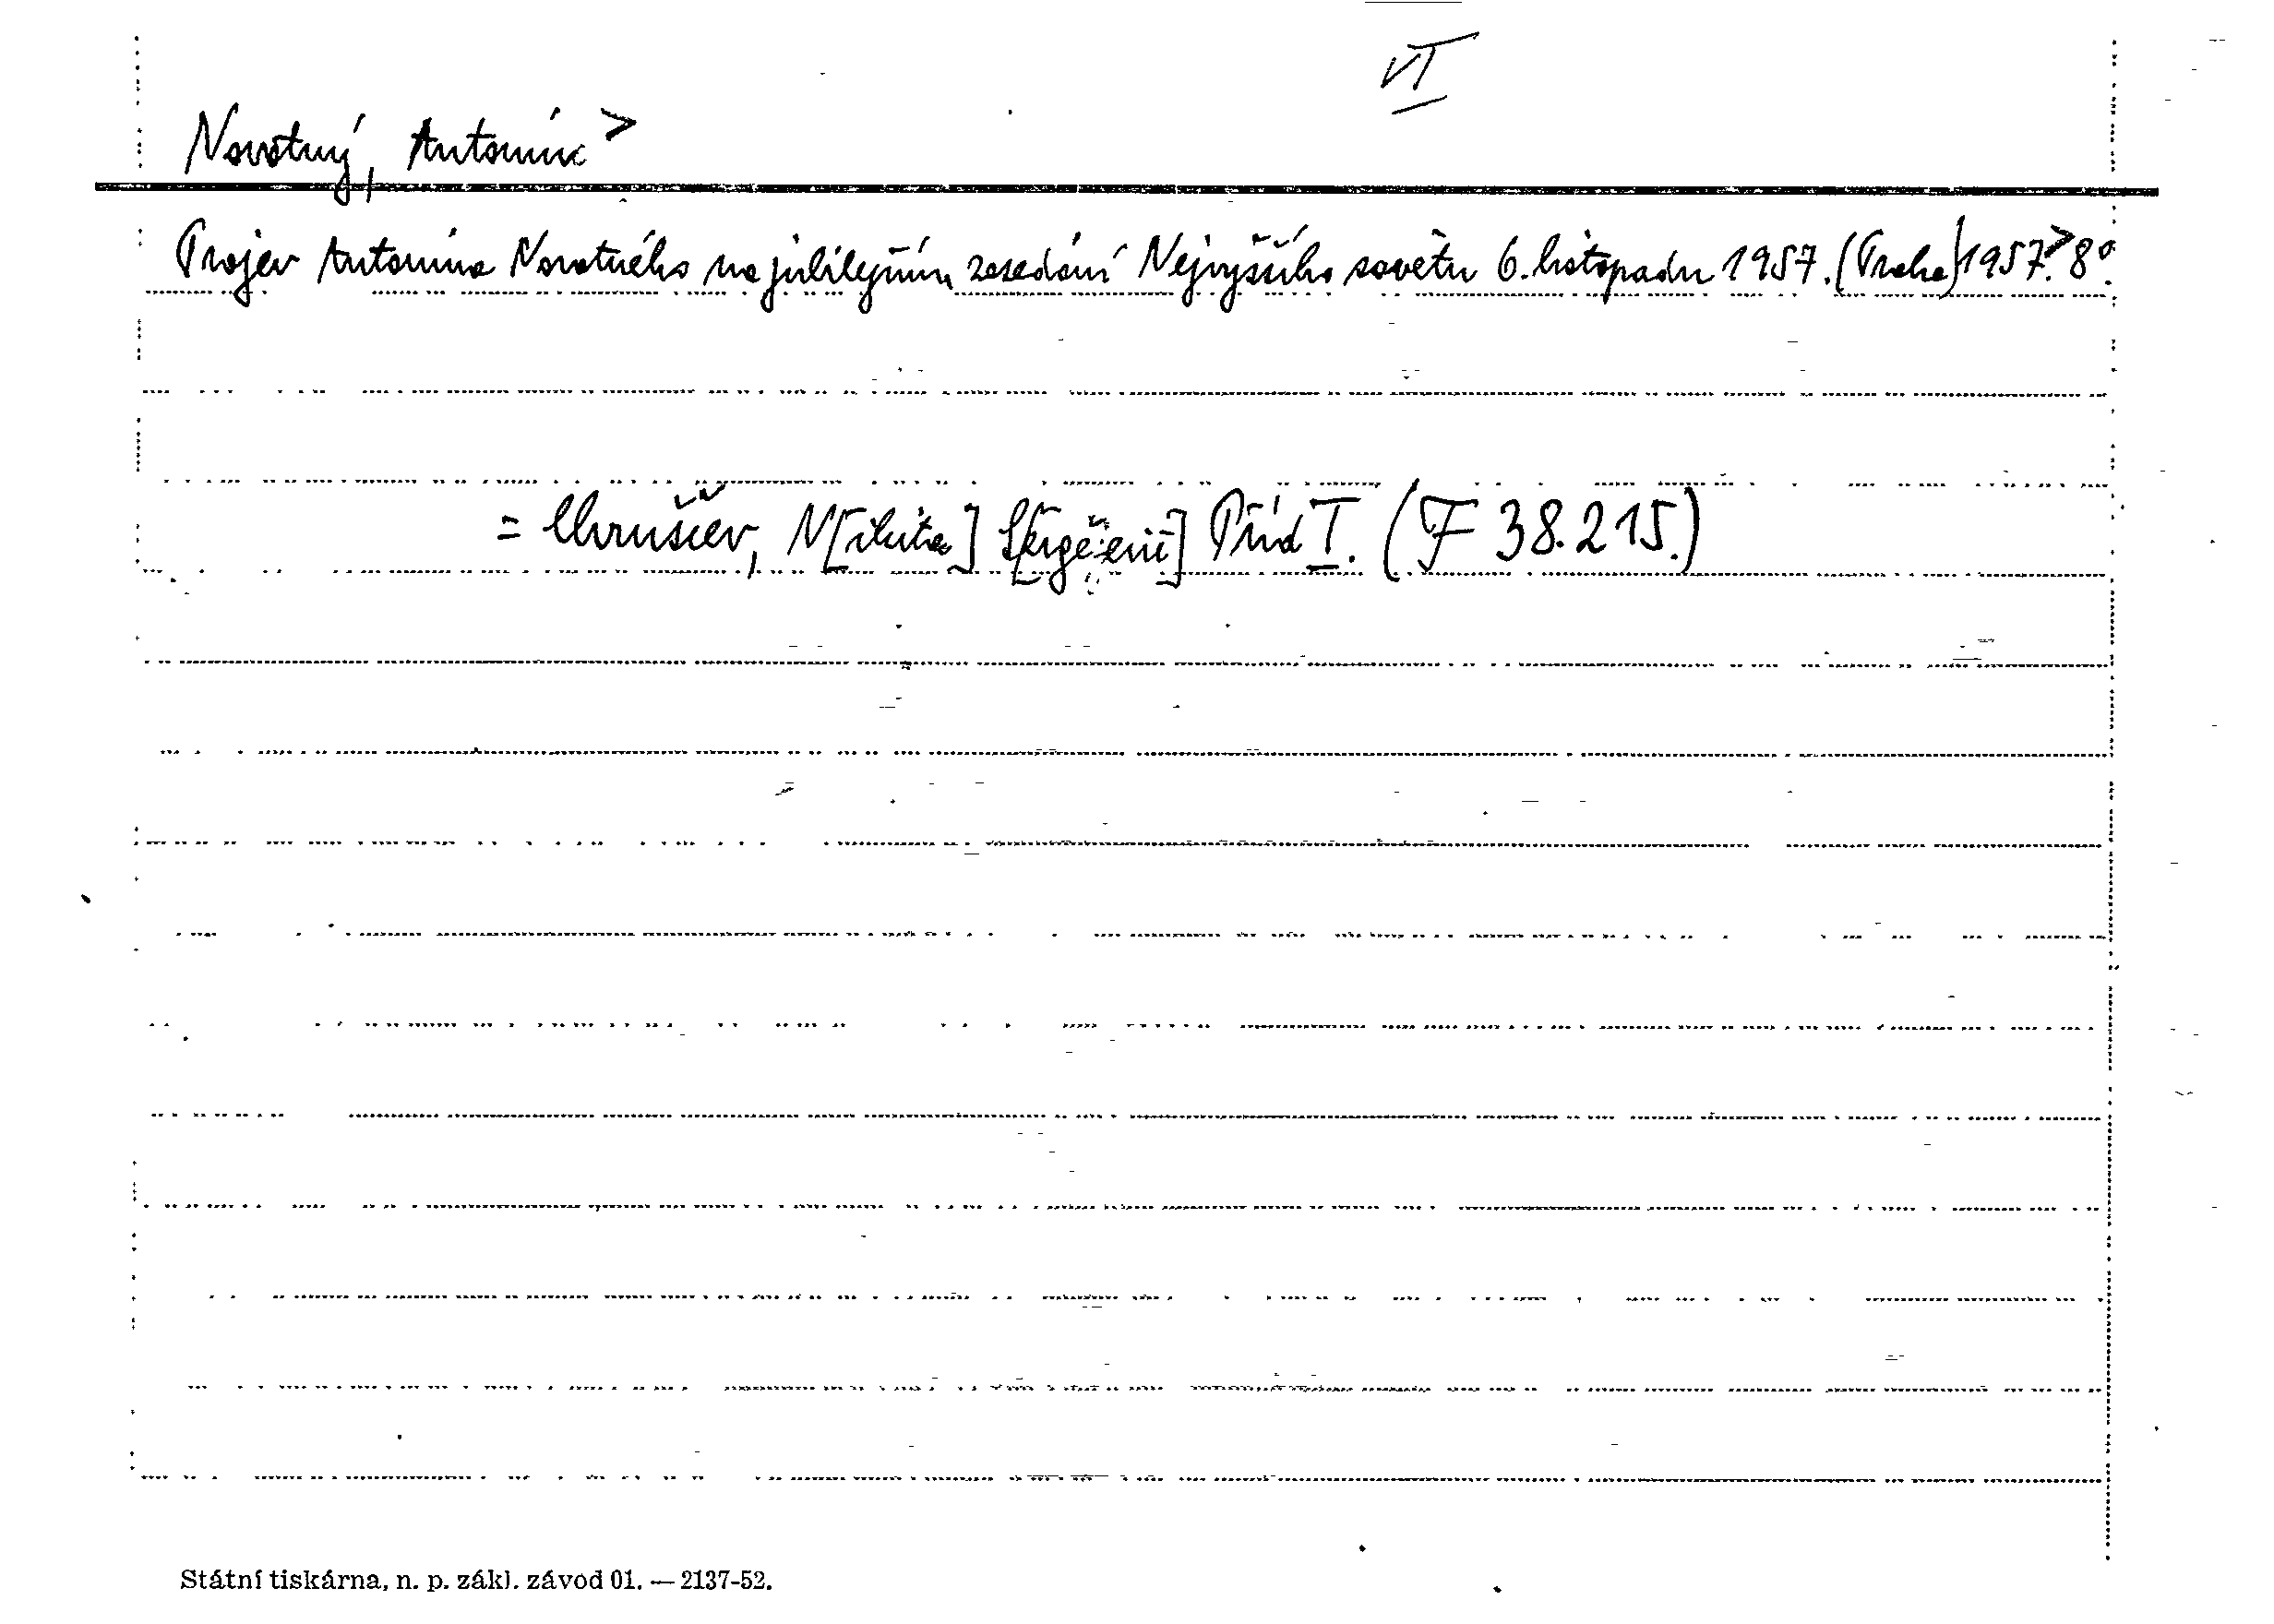 VI
Novotný, Antonín >
Projev Antonína Novotného na jubilejním zasedání Nejvyššího sovětu 6. listopadu 1957. (Praha) 1957.> 8°.
= Chruščev, N[ikita] S[ergějevič] Příd I. (F 38.215.)
Státní tiskárna, n. p. zákl. závod 01. — 2137-52.